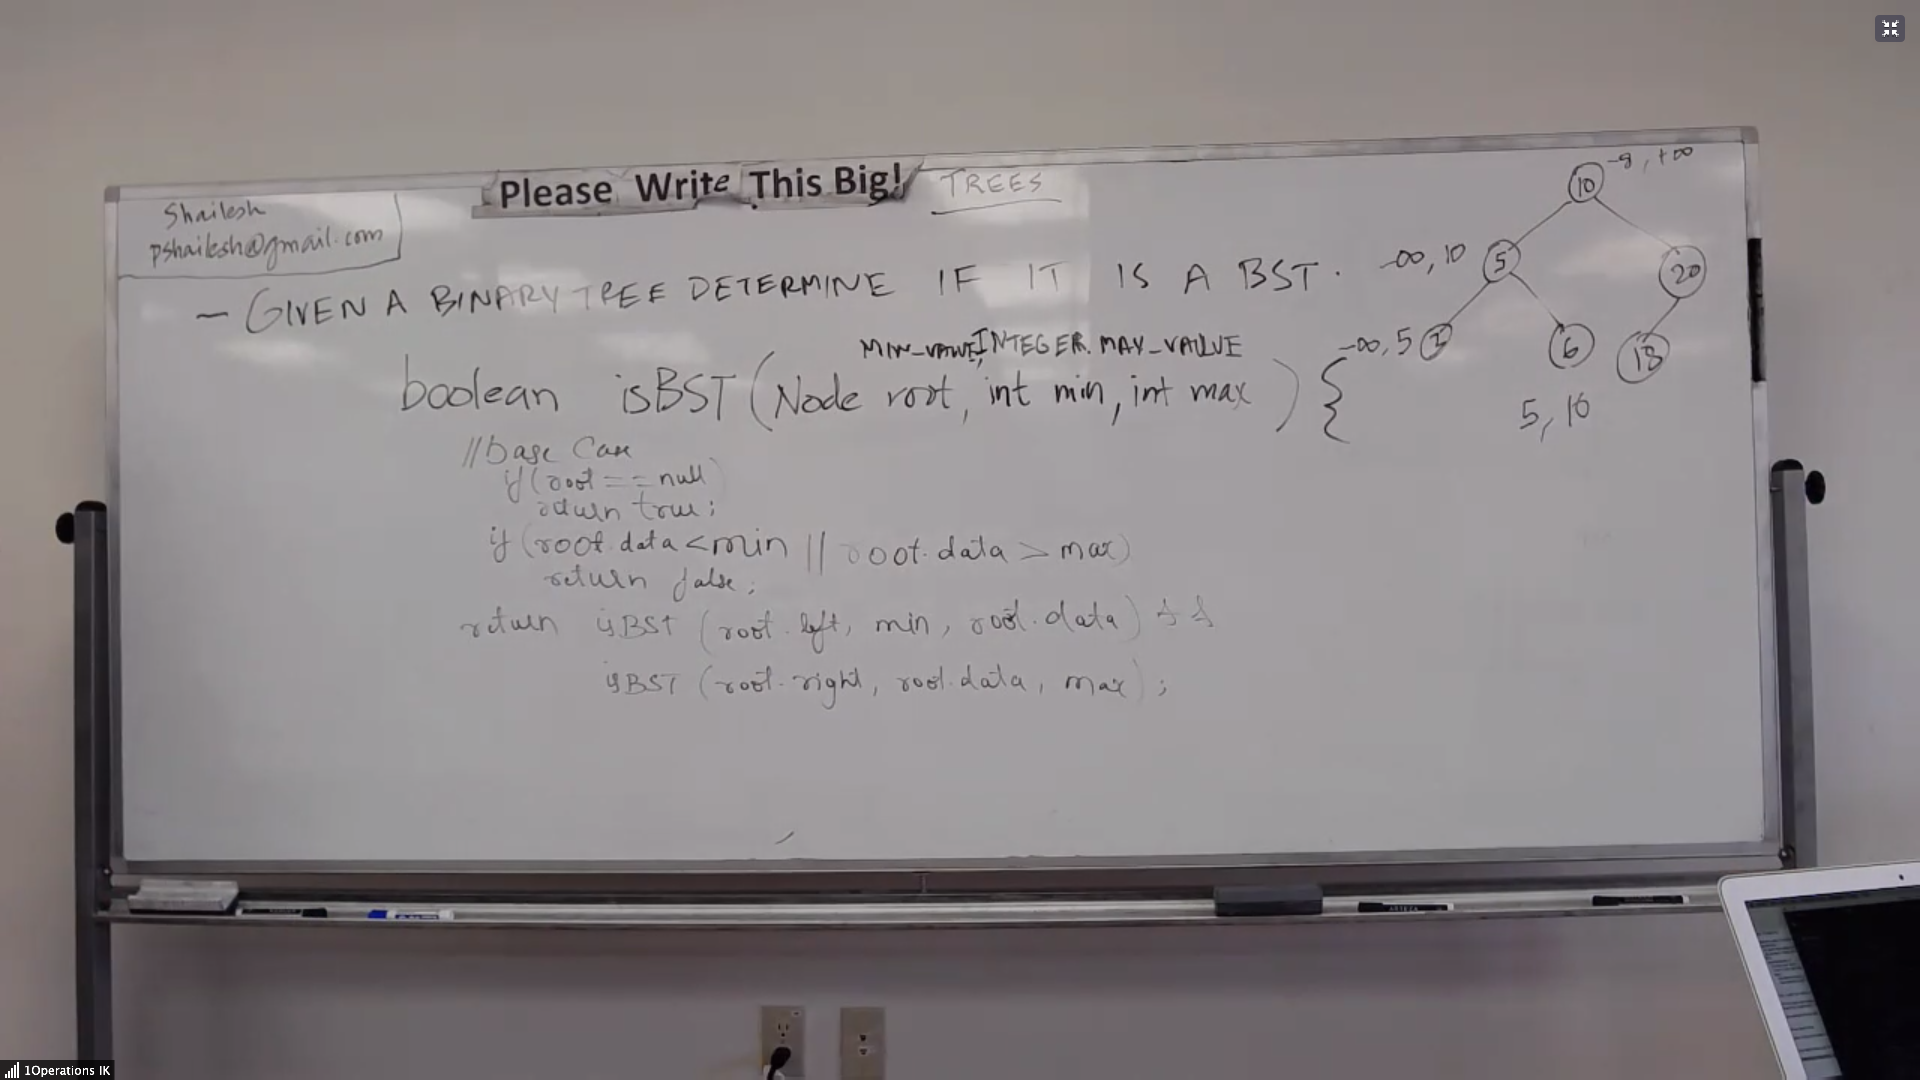 Please Write This Big!
TREES
Shailesh
pshailesh@gmail.com
- GIVEN A BINARY TREE DETERMINE IF IT IS A BST.
MIN_VALUE, INTEGER.MAX_VALUE
boolean isBST (Node root, int min, int max) {
//base Case
if (root == null)
return true;
if (root.data < min || root.data > max)
return false;
return isBST (root.left, min, root.data) &&
isBST (root.right, root.data, max);
10 , +∞
-∞, 10 5 20
-∞, 5 6 18
5, 10
1Operations IK